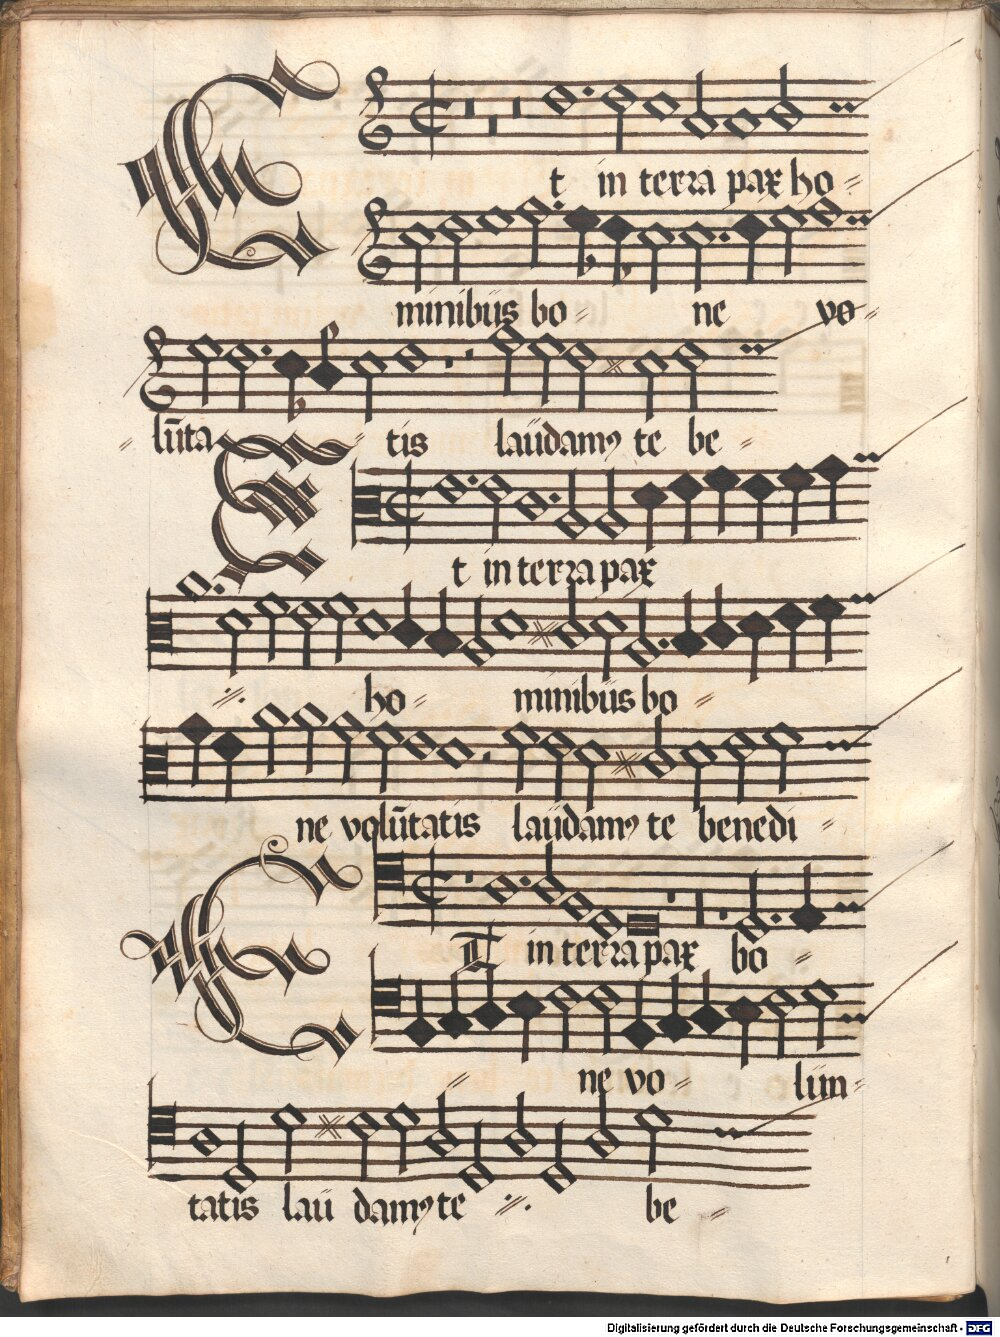 Et in terra pax ho=
minibus bo= ne vo=
= lūta = tis laudamꝰ te be =
Et in terra pax
·//· ho= minibus bo =
ne volūtatis laudamꝰ te benedi =
Et in terra pax bo =
= ne vo = lun=
tatis lau damꝰ te ·//· be =
Digitalisierung gefördert durch die Deutsche Forschungsgemeinschaft - DFG